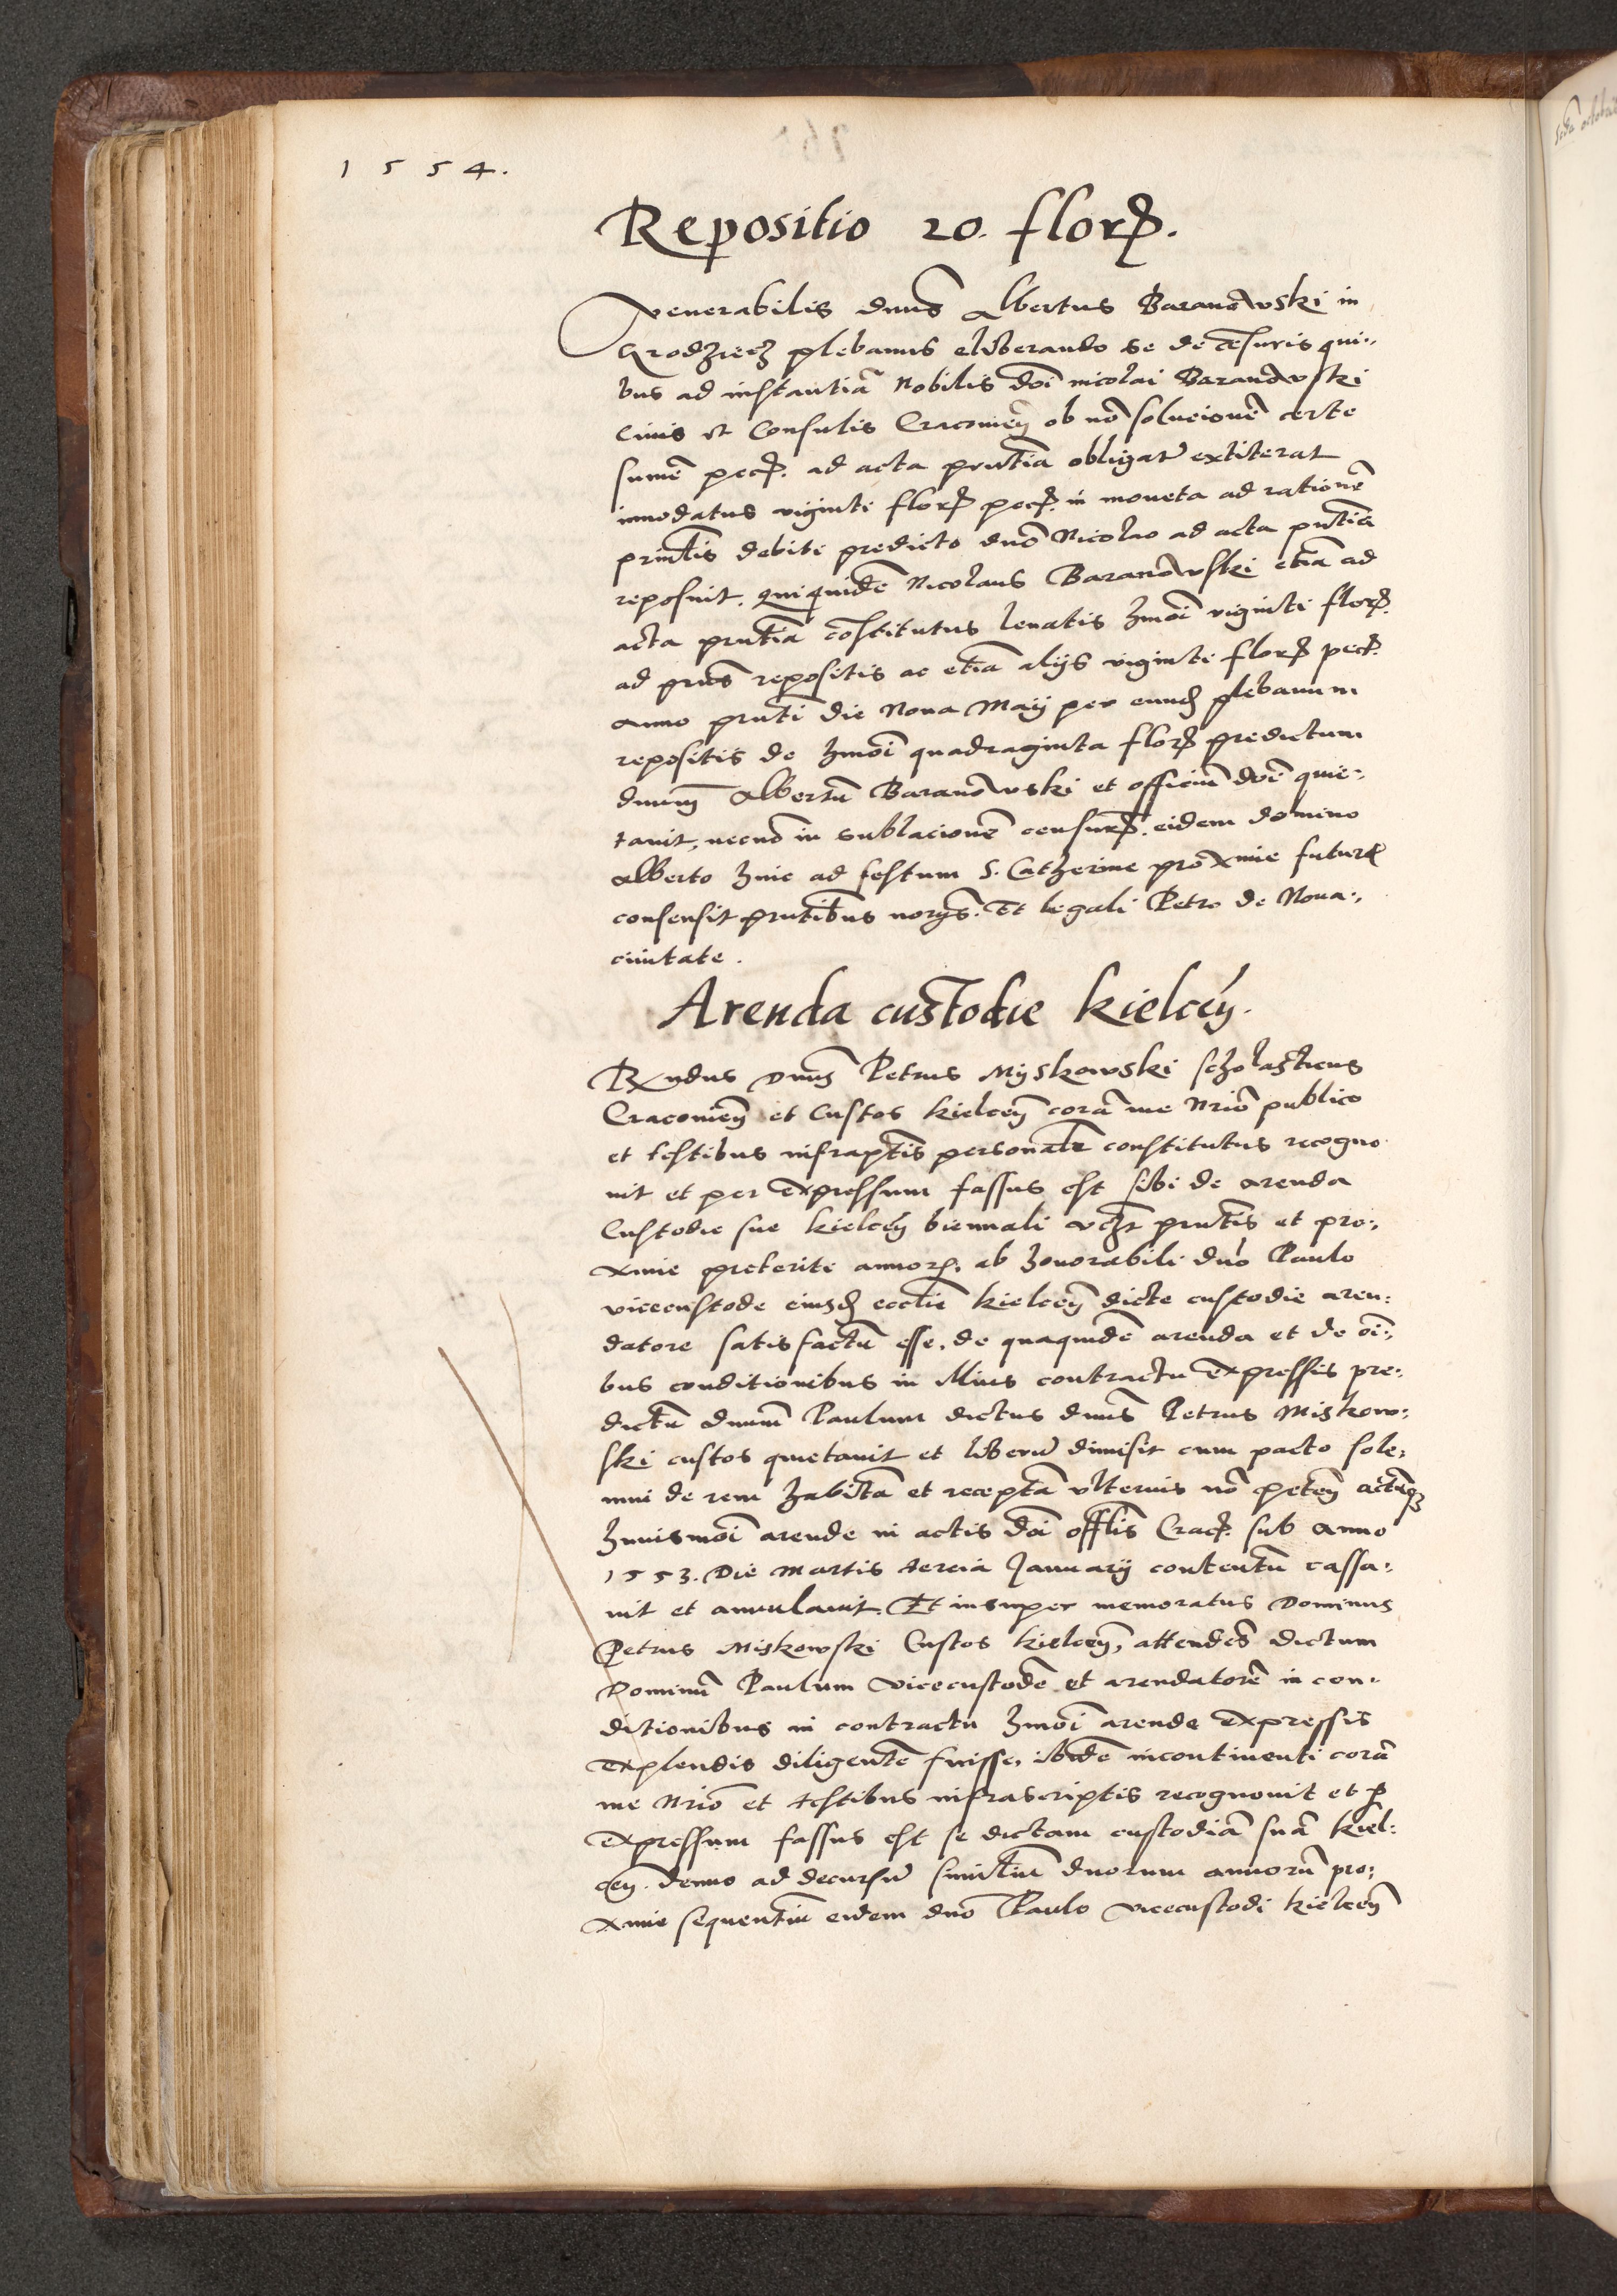 1554.
Repositio 20. florꝝ.
Venerabilis dnūs Albertus Baranowski in
Grodziecz plebanus eliberando se de cēsuris qui:,
bus ad instantiā Nobilis dnī nicolai Baranowski
Ciuis et Consulis Cracovieñ ob nō solucionē certe
sumē pecꝝ. ad acta pñtīa obligatꝰ extiterat
innodatus viginti florꝝ pecꝝ in moneta ad rationē
prīntis debiti predicto dnō Nicolao ad acta pñtīa
reposuit. Quiquidē Nicolaus Baranowski etiā ad
acta pñtīa cōstitutus leuatis hmōi viginti florꝝ.
ad prñs repositis ac etiā alijs viginti florꝝ pecꝝ.
Anno pñti die Nona Maij per eundē plebanum
repositis de hmōi quadraginta florꝝ predictum
dnum̄ Albertū Baranowski et officiū dnī quie:,
tauit, necnō in sublacionē censurꝝ. eidem domino
Alberto hinc ad festum S. Catherine proxime futurū
consensit pñtibus norijs. Et legali Petro de Noua:,
ciuitate.
Arenda custodie kielceñ.
Rxndus Dnūs Petrus Myskowski scholasticus
Cracovieñ et Custos kielceñ corā me Nriō publico
et testibus infraptis personalr constitutus recogno
uit et per expressum fassus est sibi de arenda
Custodie sue kielceñ biennali vꝫt pñtis et pro:,
xime preterite annorꝝ. ab honorabili dnō Paulo
vicecustode eiusdē eccliē kielceñ dicte custodie aren:
datore satisfactū esse. de quaquidē arenda et de oī:,
bus conditionibus in illius contractu expressis pre:,
dictū dnum̄ Paulum dictus dnūs Petrus Miskow:,
ski custos quietauit et liberū dimisit cum pacto sole:,
mni de rem habitā et receptā vlterius nō peteñ actūqꝫ
huiusmōi arende in actis dnī offlis Cracꝝ. sub anno
1553. Die Martis tercia Januarij contentū cassa:,
uit et annulauit. Et insuper memoratus Dominus
Petrus Miskowski Custos kielceñ, attendēs dictum
Dominū Paulum vicecustodē et arendatorē in con:,
ditionibus in contractu hmōi arende expressis
explendis diligentē fuisse, ibidē incontinenti corā
me Nriō et testibus infrascriptis recognouit et ꝑ
expressum fassus est se dictam custodiā suā kiel:
ceñ. denuo ad decursū similiū duorum annorū pro:,
xime sequentiū eidem dnō Paulo vicecustodi kielceñ